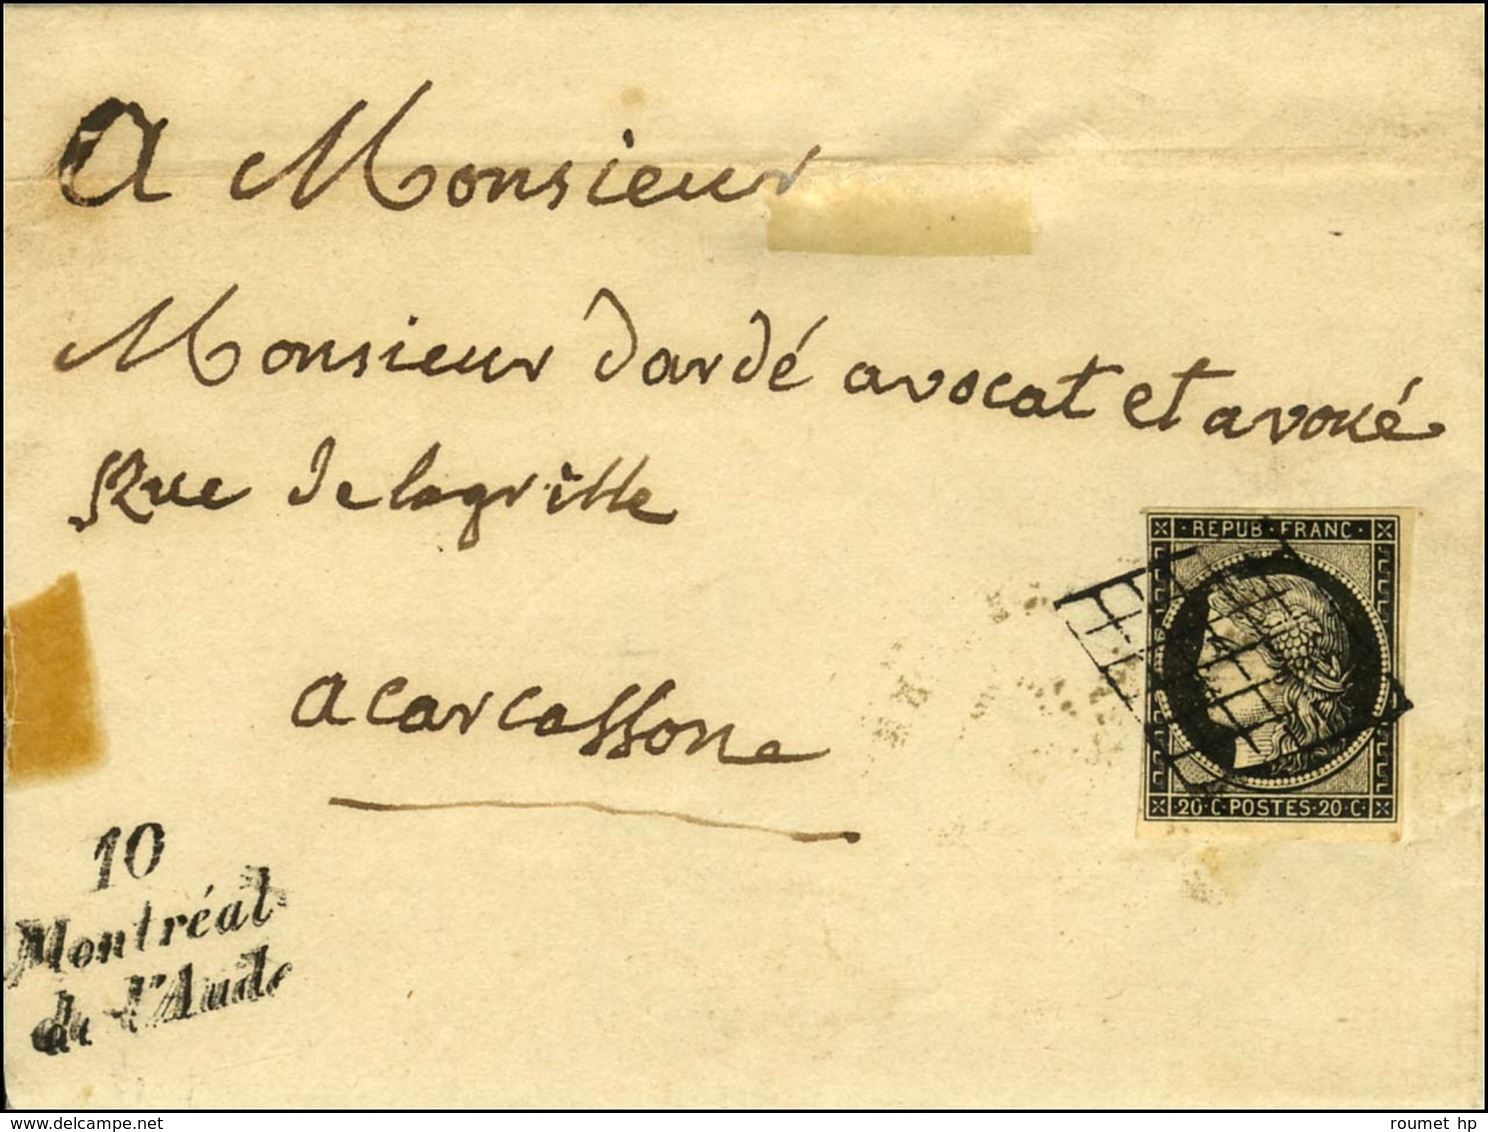 A Monsieur
Monsieur dardé avocat et avoué
Rue de lagrille
a carcassonne
REPUB · FRANC ·
20 · C · POSTES · 20 · C ·
10
Montréal
de l'Aude
roumet hp